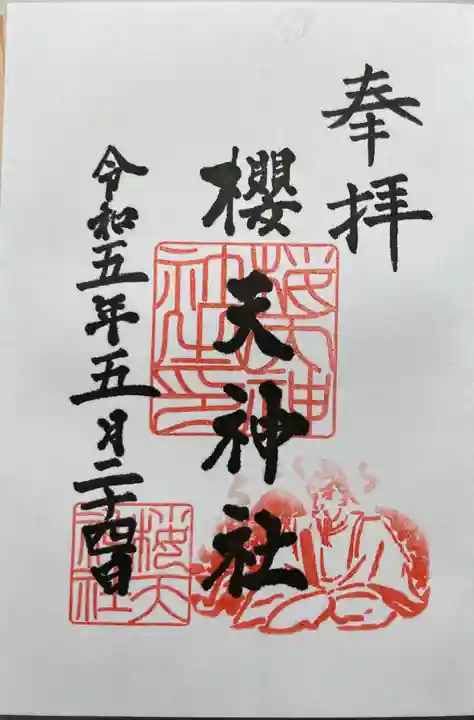 奉拝
櫻天神社
令和五年五月二十四日
桜天神社印
桜天神社